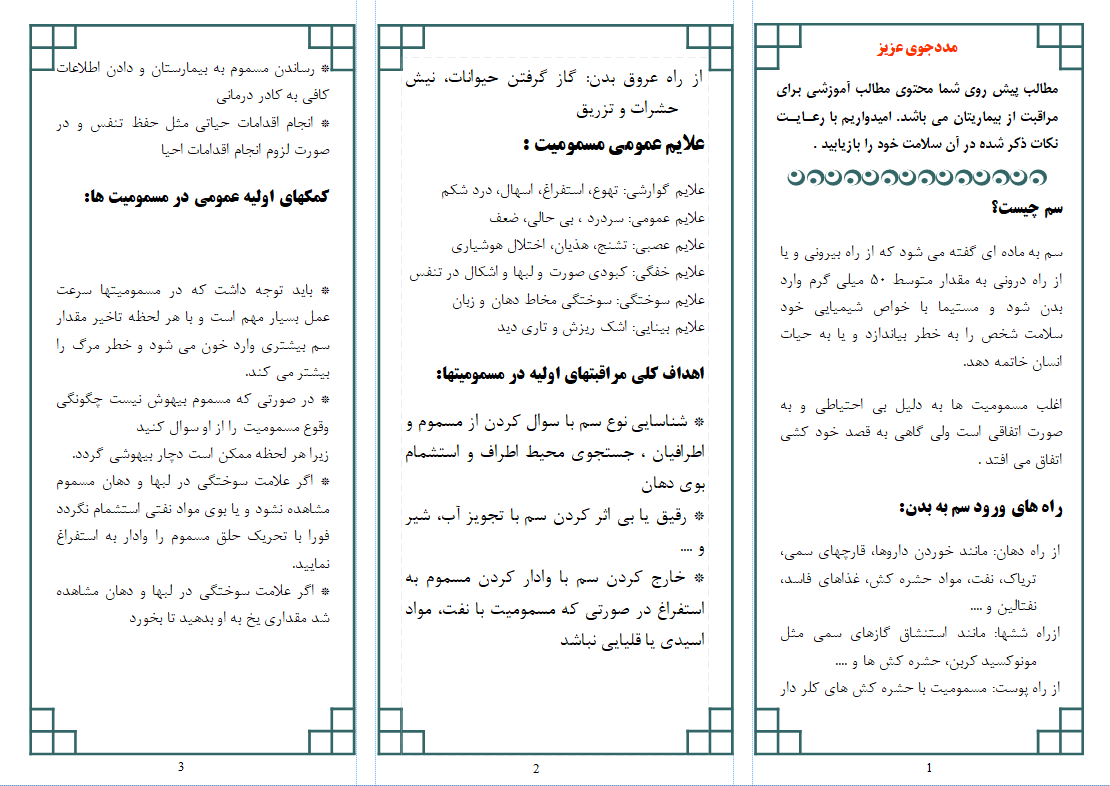 مددجوی عزیز
مطالب پیش روی شما محتوی مطالب آموزشی برای
مراقبت از بیماریتان می باشد. امیدواریم با رعایت
نکات ذکر شده در آن سلامت خود را بازیابید .
سم چیست؟
سم به ماده ای گفته می شود که از راه بیرونی و یا
از راه درونی به مقدار متوسط ۵۰ میلی گرم وارد
بدن شود و مستیما با خواص شیمیایی خود
سلامت شخص را به خطر بیاندازد و یا به حیات
انسان خاتمه دهد.
اغلب مسمومیت ها به دلیل بی احتیاطی و به
صورت اتفاقی است ولی گاهی به قصد خود کشی
اتفاق می افتد .
راه های ورود سم به بدن:
از راه دهان: مانند خوردن داروها، قارچهای سمی،
تریاک، نفت، مواد حشره کش، غذاهای فاسد،
نفتالین و ....
ازراه ششها: مانند استنشاق گازهای سمی مثل
مونوکسید کربن، حشره کش ها و ....
از راه پوست: مسمومیت با حشره کش های کلر دار
1
از راه عروق بدن: گاز گرفتن حیوانات، نیش
حشرات و تزریق
علایم عمومی مسمومیت :
علایم گوارشی: تهوع، استفراغ، اسهال، درد شکم
علایم عمومی: سردرد ، بی حالی، ضعف
علایم عصبی: تشنج، هذیان، اختلال هوشیاری
علایم خفگی: کبودی صورت و لبها و اشکال در تنفس
علایم سوختگی: سوختگی مخاط دهان و زبان
علایم بینایی: اشک ریزش و تاری دید
اهداف کلی مراقبتهای اولیه در مسمومیتها:
❊ شناسایی نوع سم با سوال کردن از مسموم و
اطرافیان ، جستجوی محیط اطراف و استشمام
بوی دهان
❊ رقیق یا بی اثر کردن سم با تجویز آب، شیر
و ....
❊ خارج کردن سم با وادار کردن مسموم به
استفراغ در صورتی که مسمومیت با نفت، مواد
اسیدی یا قلیایی نباشد
2
❊ رساندن مسموم به بیمارستان و دادن اطلاعات
کافی به کادر درمانی
❊ انجام اقدامات حیاتی مثل حفظ تنفس و در
صورت لزوم انجام اقدامات احیا
کمکهای اولیه عمومی در مسمومیت ها:
❊ باید توجه داشت که در مسمومیتها سرعت
عمل بسیار مهم است و با هر لحظه تاخیر مقدار
سم بیشتری وارد خون می شود و خطر مرگ را
بیشتر می کند.
❊ در صورتی که مسموم بیهوش نیست چگونگی
وقوع مسمومیت را از او سوال کنید
زیرا هر لحظه ممکن است دچار بیهوشی گردد.
❊ اگر علامت سوختگی در لبها و دهان مسموم
مشاهده نشود و یا بوی مواد نفتی استشمام نگردد
فورا با تحریک حلق مسموم را وادار به استفراغ
نمایید.
❊ اگر علامت سوختگی در لبها و دهان مشاهده
شد مقداری یخ به او بدهید تا بخورد
3